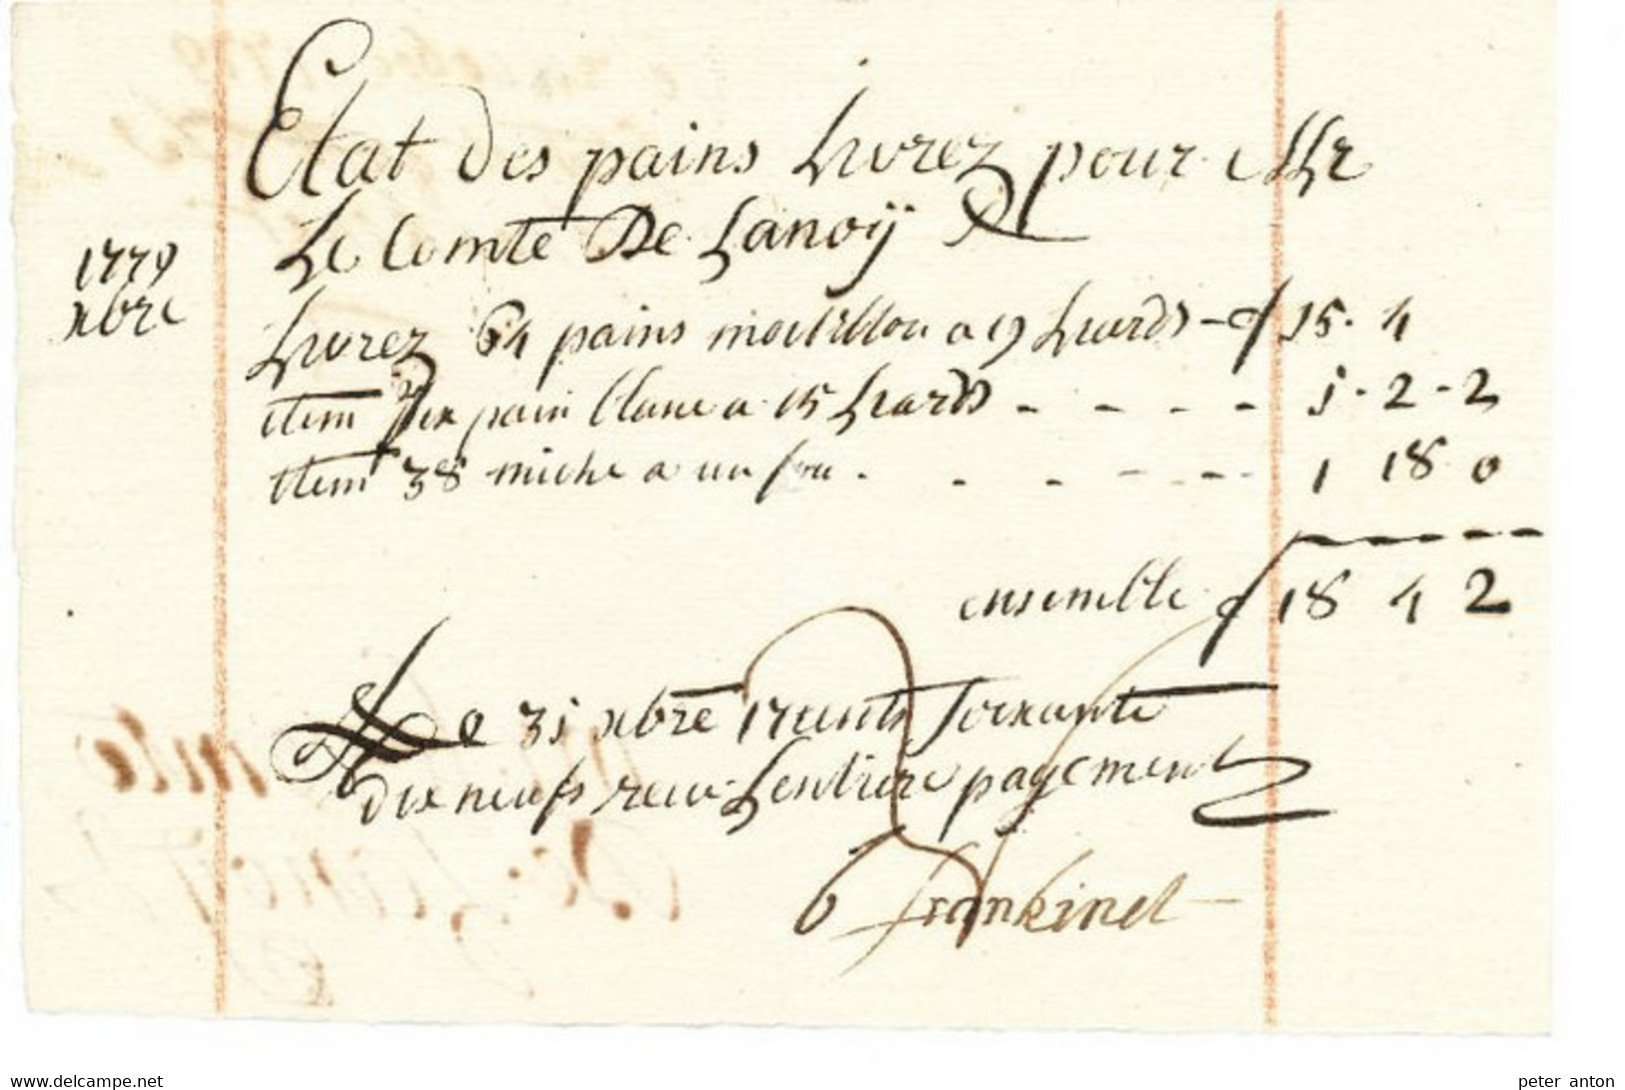 Etat des pains Livrez pour Mr
Le Comte De Lanoÿ
1779
xbre
Livrez 64 pains moitillon a 19 Liards - f 15 - 4
item six pain blanc a 15 Liards - - - - 1 - 2 - 2
item 38 miche a un sou . - - - - - - 1 18 0
ensemble f 18 4 2
Le 31 xbre 17 cents soixante
dix neufs recu Lentiere payement
frankinet
www.delcampe.net
peter anton